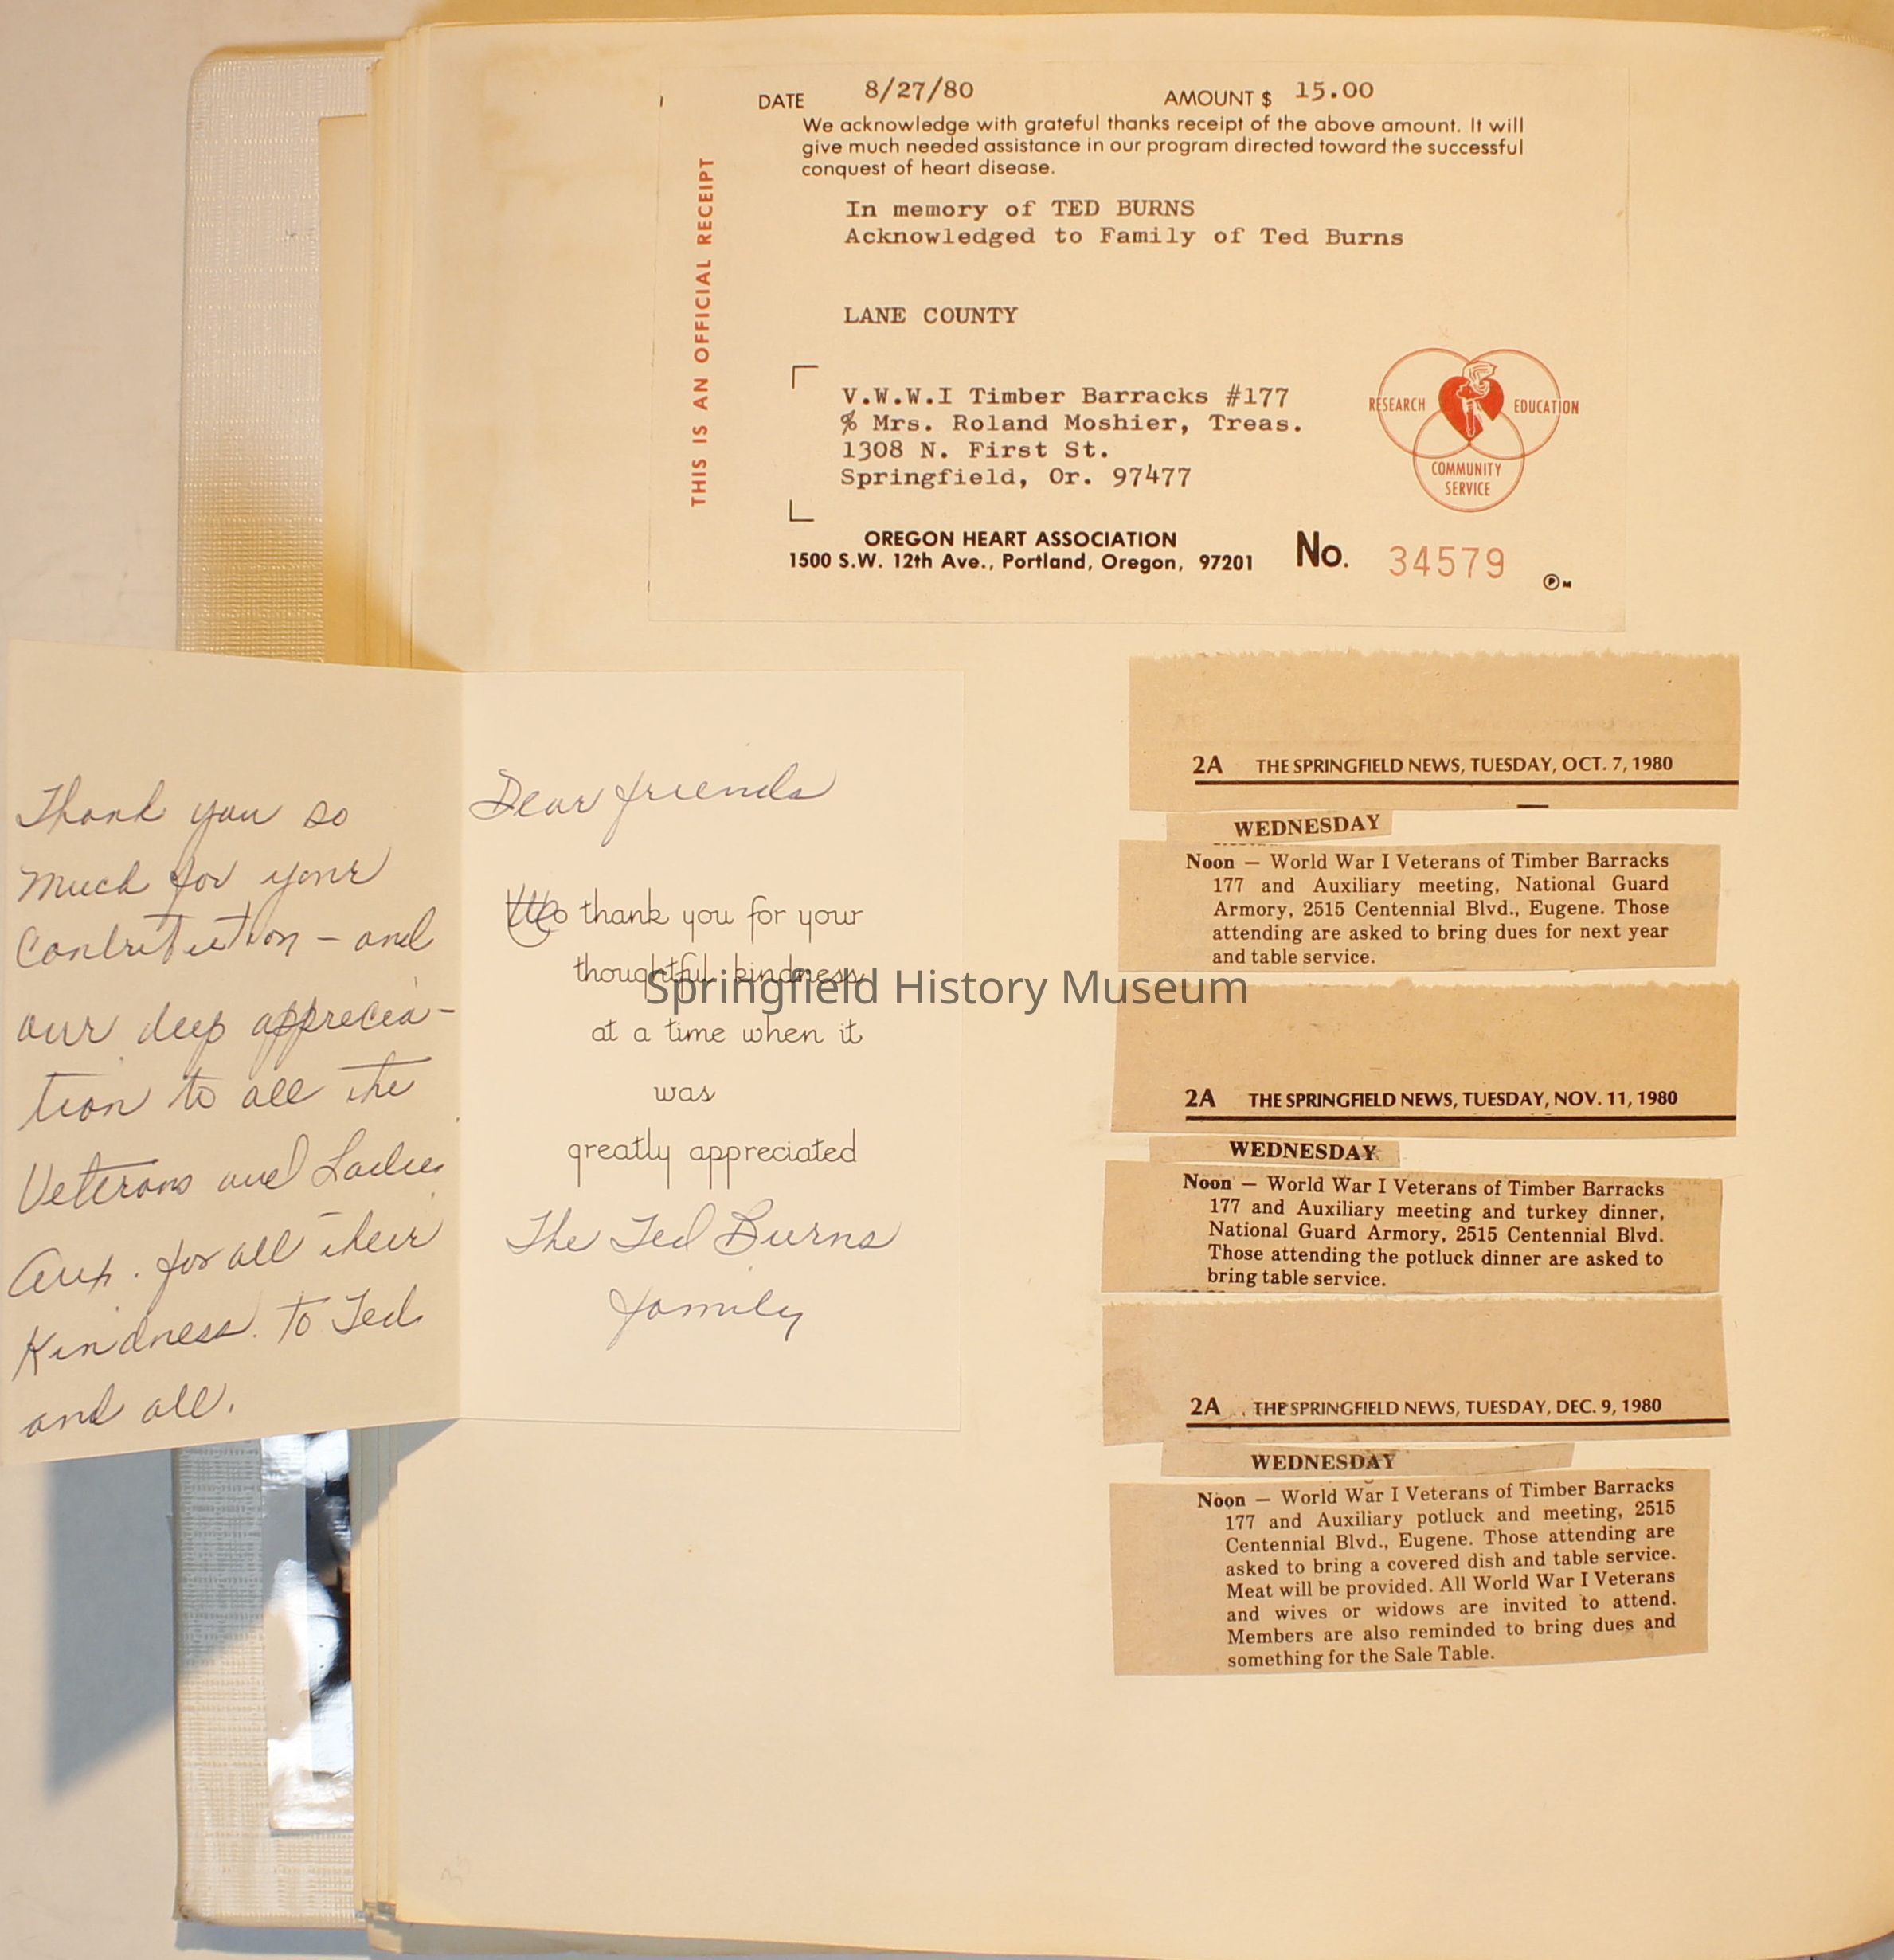 DATE 8/27/80 AMOUNT $ 15.00
We acknowledge with grateful thanks receipt of the above amount. It will
give much needed assistance in our program directed toward the successful
conquest of heart disease.
THIS IS AN OFFICIAL RECEIPT
In memory of TED BURNS
Acknowledged to Family of Ted Burns
LANE COUNTY
V.W.W.I Timber Barracks #177
% Mrs. Roland Moshier, Treas.
1308 N. First St.
Springfield, Or. 97477
RESEARCH EDUCATION
COMMUNITY
SERVICE
OREGON HEART ASSOCIATION
1500 S.W. 12th Ave., Portland, Oregon, 97201
No. 34579
Thank you so
much for your
Contribution - and
our deep apprecia-
tion to all the
Veterans and Ladies
Aux. for all their
Kindness. to Ted
and all.
Dear friends
We thank you for your
thoughtful kindness
at a time when it
was
greatly appreciated
The Ted Burns
family
Springfield History Museum
2A THE SPRINGFIELD NEWS, TUESDAY, OCT. 7, 1980
WEDNESDAY
Noon — World War I Veterans of Timber Barracks
177 and Auxiliary meeting, National Guard
Armory, 2515 Centennial Blvd., Eugene. Those
attending are asked to bring dues for next year
and table service.
2A THE SPRINGFIELD NEWS, TUESDAY, NOV. 11, 1980
WEDNESDAY
Noon — World War I Veterans of Timber Barracks
177 and Auxiliary meeting and turkey dinner,
National Guard Armory, 2515 Centennial Blvd.
Those attending the potluck dinner are asked to
bring table service.
2A THE SPRINGFIELD NEWS, TUESDAY, DEC. 9, 1980
WEDNESDAY
Noon — World War I Veterans of Timber Barracks
177 and Auxiliary potluck and meeting, 2515
Centennial Blvd., Eugene. Those attending are
asked to bring a covered dish and table service.
Meat will be provided. All World War I Veterans
and wives or widows are invited to attend.
Members are also reminded to bring dues and
something for the Sale Table.